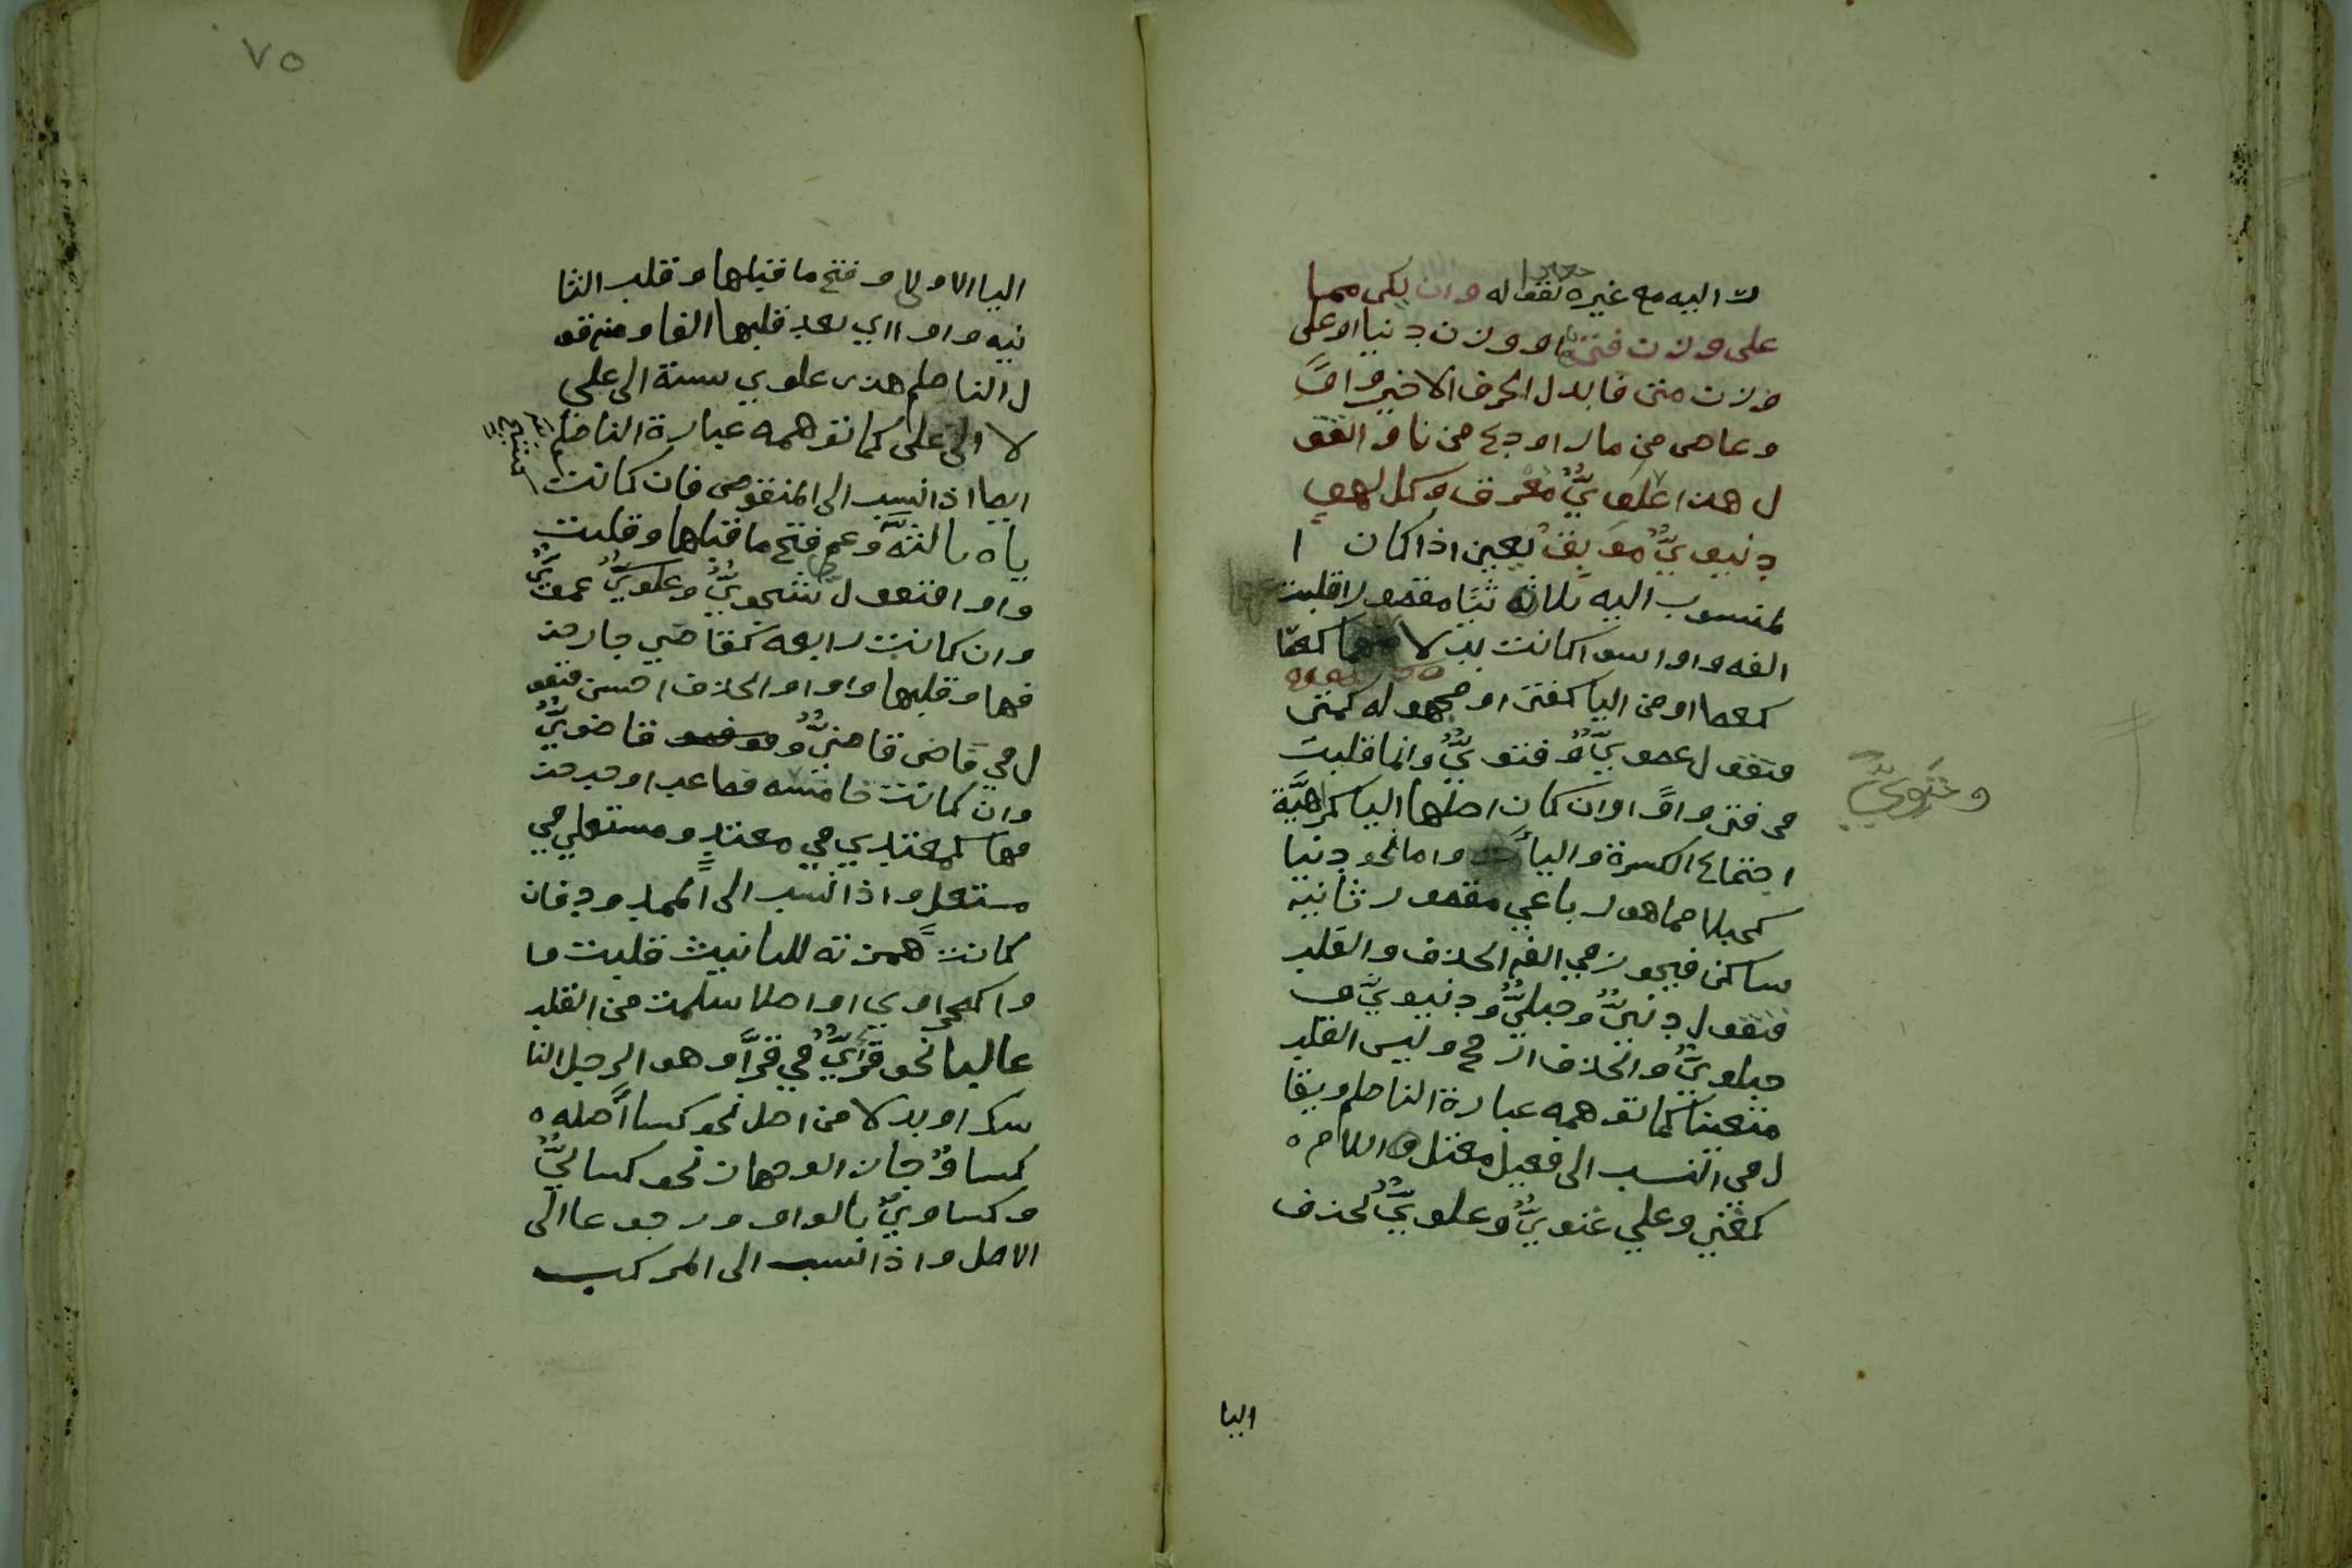 ت اليه مع غيره نفعا له وان يكن مما
على وزن فتى او وزن دنيا او على
وزن متى فابدل الحرف الاخير واوا
وعاص من مارا ودع من ناوا نقو
ل هذا علويٌّ معرق وكل لهو
دنيويٌّ موبق يعين اذا كان ا
لمنسوب اليه ثلاثه ثيا مقصورا قلبت
الفه واوا سوا كانت بدلا
كعصا او من اليا كفتى او مجهوله كمتى
فتقول عصويٌّ وفتويٌّ وانما قلبت
في فتى واوا وان كان اصلها اليا كراهيَّة
اجتماع الكسرة واليا واما نحو دنيا
كحبلا مما هو رباعي مقصور ثانيه
ساكن فيجوز في الفه الحذف والقلب
فتقول دنييٌّ وحبليٌّ ودنيويٌّ و
حبلويٌّ والحذف ارجح وليس القلب
متعينا كما توهمه عبارة الناظم ويقا
ل في النسب الى فعيل معتل اللام
كغني وعلي غنويٌّ وعلويٌّ لحذف
اليا
ومتويٌّ
٧٥
اليا الاولى وفتح ما قبلها وقلب الثا
نيه واوا اي بعد قلبها الفا ومنه قو
ل الناظم هذا علوي نسبة الى علي
لا الى على كما توهمه عبارة الناظم
ايضا اذا نسب الى المنقوص فان كانت
ياه ثالثة وعم فتح ما قبلها وقلبت
واوا فتقول شجويٌّ وعلويٌّ عمويٌّ
وان كانت رابعه كقاضي جاز حذ
فها وقلبها واوا والحذف احسن فتقو
ل في قاضي قاضيٌّ و قاضويٌّ
وان كانت خامسه فصاعدا وجب حذ
فها كمعتدي في معتدٍ ومستعلي في
مستعل واذا نسب الى الممدود فان
كانت همزته للتانيث قلبت وا
وا كصحراوي او اصلا سلمت من القلب
غالبا نحو قرّائيٌّ في قرّا وهو الرجل النا
سك او بدلا من اصل نحو كسا اصله
كساوٌ جاز الوجهان نحو كسائيٌّ
وكساويٌّ بالواو ورجوعا الى
الاصل واذا نسب الى المركب